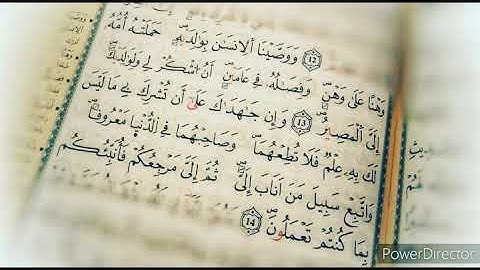 12 وَوَصَّيْنَا اَلِانسَٰنَ بِوَٰلِدَيْهِ حَمَلَتْهُ أُمُّهُۥ
وَهْناً عَلَىٰ وَهْنٖ وَفِصَٰلُهُۥ فِے عَامَيْنِ أَنُ اُشْكُرْ لِے وَلِوَٰلِدَيْكَ
إِلَيَّ اَلْمَصِيرُ 13 وَإِن جَٰهَدَٰكَ عَلَىٰ أَن تُشْرِكَ بِے مَا لَيْسَ
لَكَ بِهِۦ عِلْمٞ فَلَا تُطِعْهُمَا وَصَاحِبْهُمَا فِے اِلدُّنْيَا مَعْرُوفاٗ
وَاتَّبِعْ سَبِيلَ مَنَ اَنَابَ إِلَيَّ ثُمَّ إِلَيَّ مَرْجِعُكُمْ فَأُنَبِّئُكُم
بِمَا كُنتُمْ تَعْمَلُونَ 14
PowerDirector